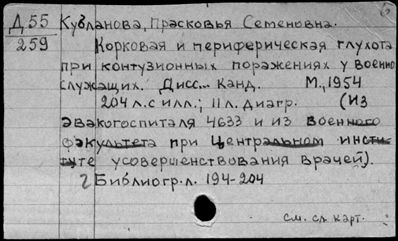 Д55 Кубланова, Прасковья Семеновна.
259 Корковая и периферическая глухота
при контузионных поражениях у военно
служащих. Дисс... Канд. М., 1954
204 л. с илл.; 11 л. диагр. (Из
эвакогоспиталя 4633 и из военного
факультета при Центральном инсти-
туте усовершенствования врачей).
Библиогр. л. 194-204
См. сл. карт.